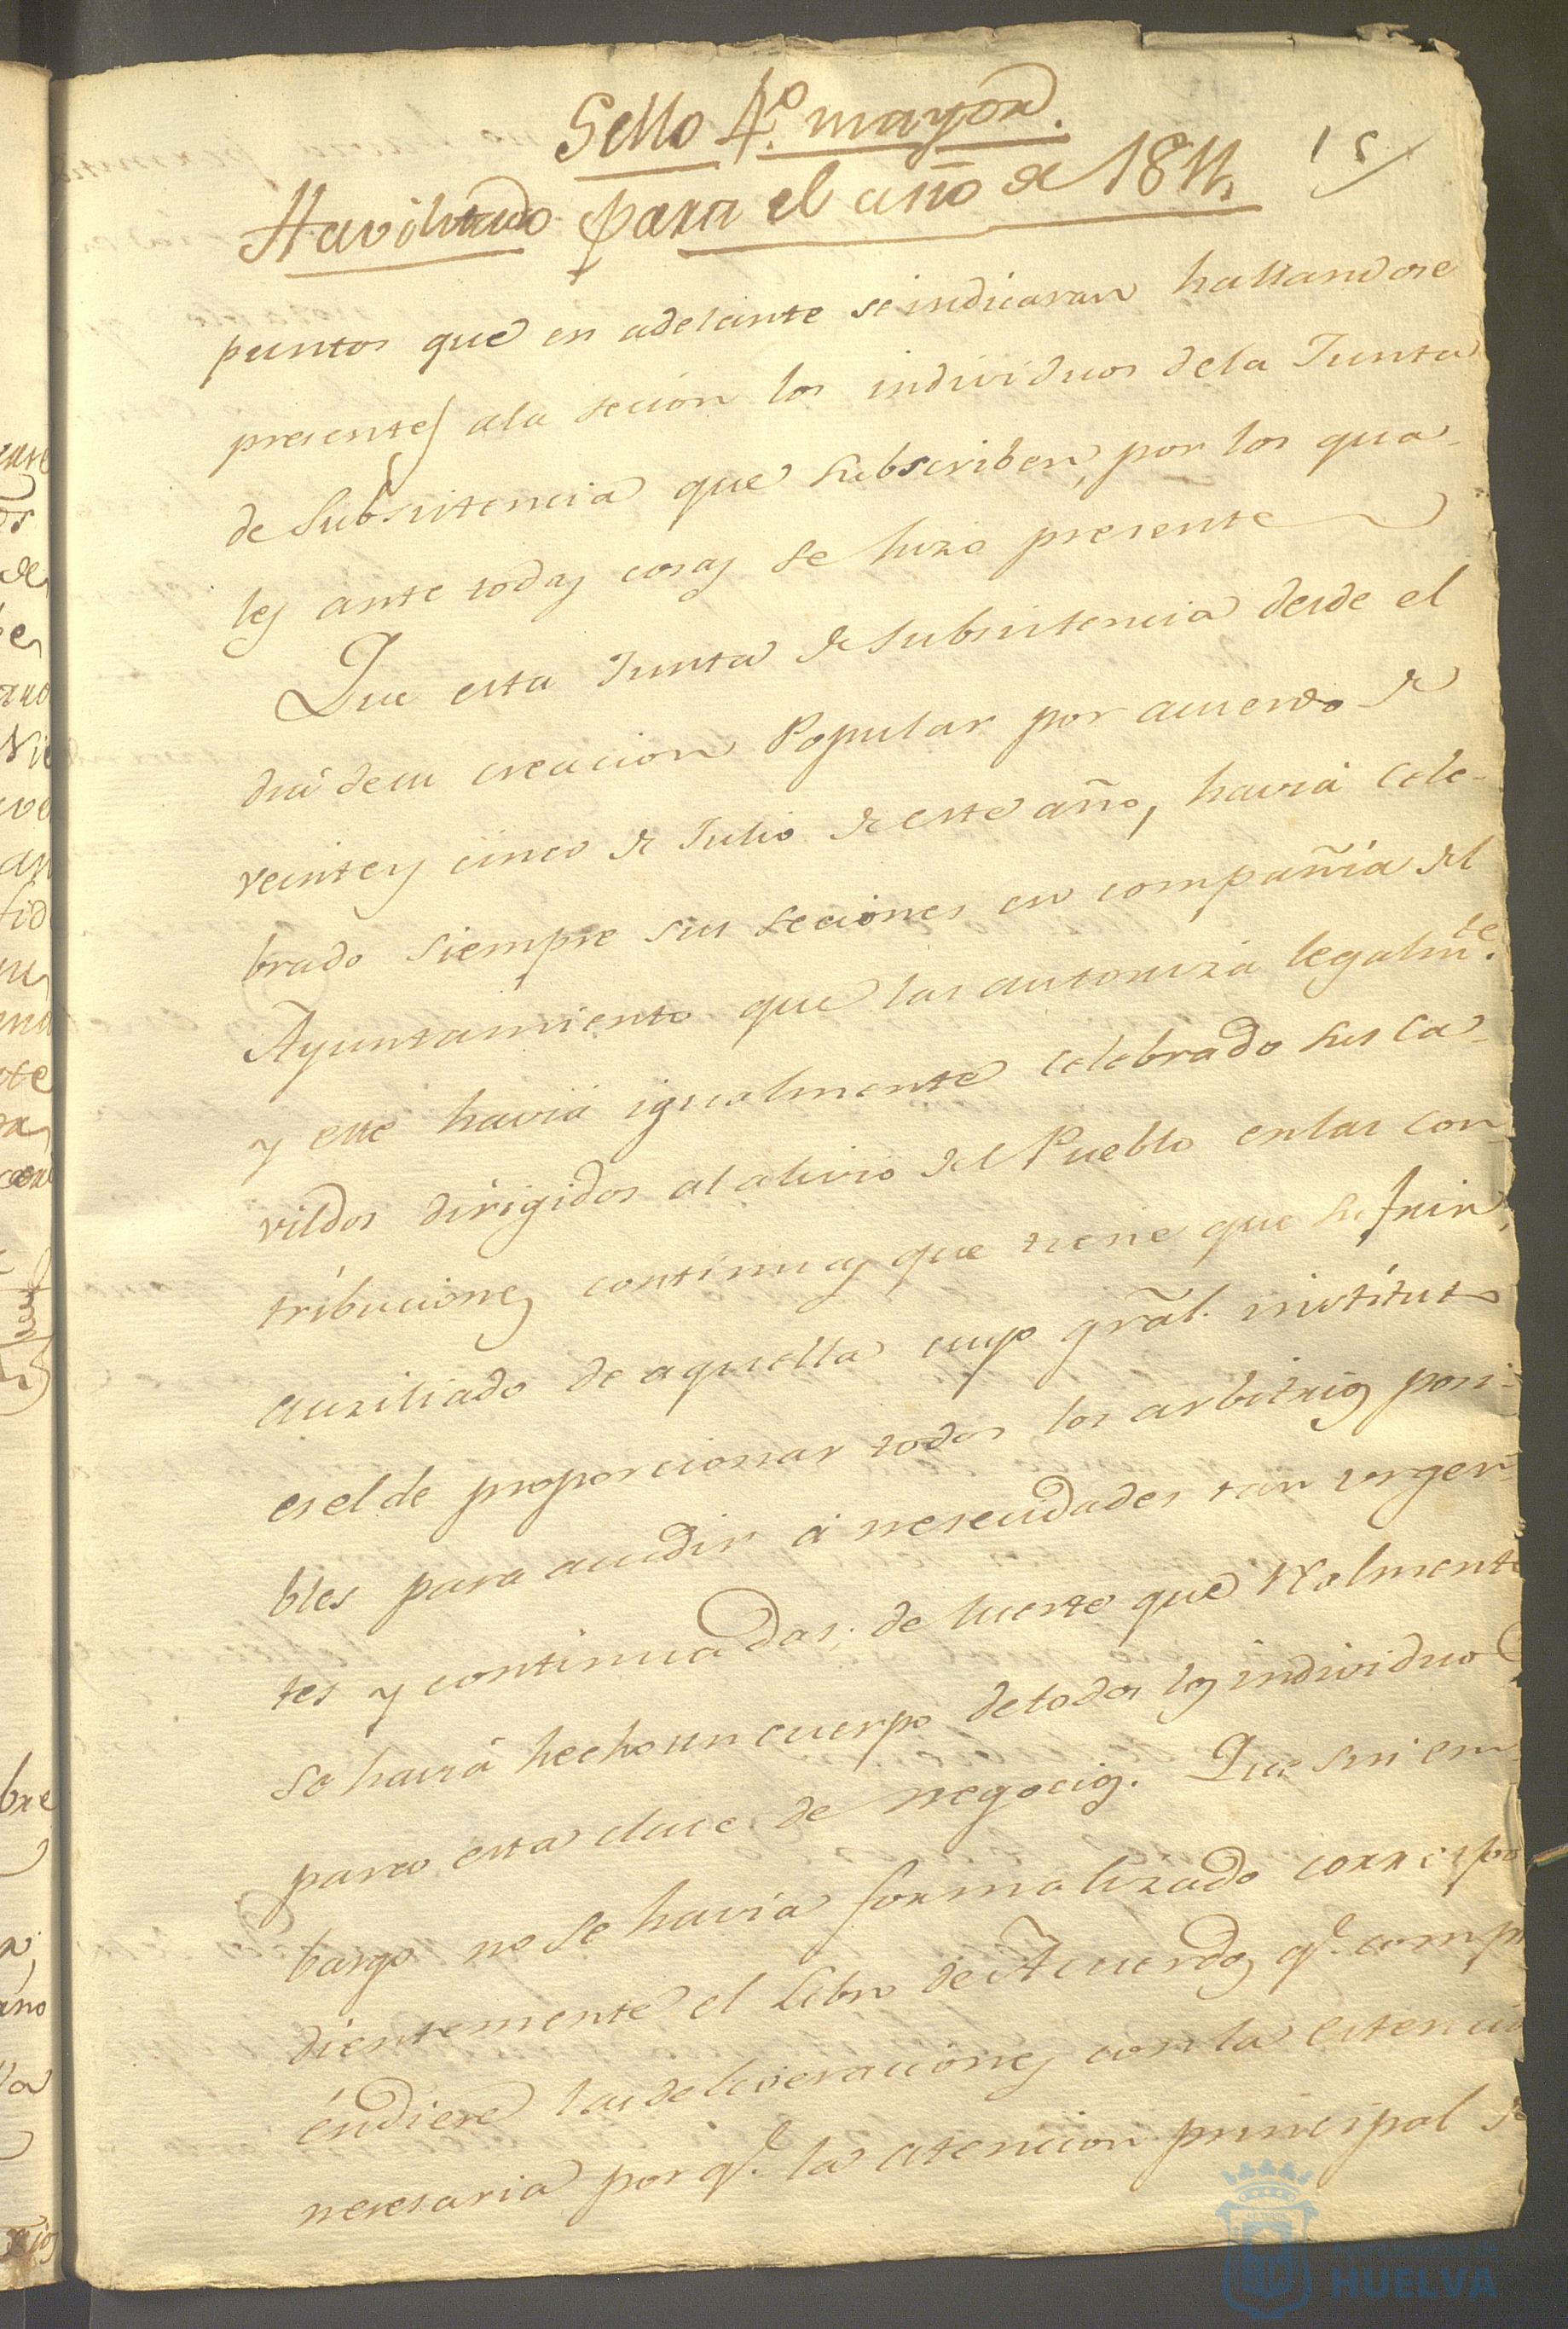 Sello 4.º mayor.
Havilitado para el año de 1811,
15
puntos que en adelante se indicaran hallandose
presentes ala secion los individuos dela Junta
de Subsistencia que subscriben, por los qua-
les ante todas cosas se hizo presente
Que esta Junta de subsistencia desde el
dia desu creacion Popular por acuerdo de
veinte y cinco de Julio de este año, havia cele-
brado siempre sus seciones en compañia del
Ayuntamiento que las autoriza legalmte.
y este havia igualmente celebrado sus ca-
vildos dirigidos al alivio del Pueblo enlas con
tribuciones continuas que tiene que sufrir,
auxiliado de aquella cuyo gral. instituto
es el de proporcionar todos los arbitrios posi-
bles para acudir á nesecidades tan urgen-
tes y continuadas; de suerte que realmente
se havia hecho un cuerpo detodos los individuos
para esta clace de negocios. Que sin em
bargo no se havia formalizado correspon
dientemente el Libro de Acuerdos qe. compr
éndiese las deliveraciones con la estencion
necesaria por qe. la atencion principal de
HUELVA